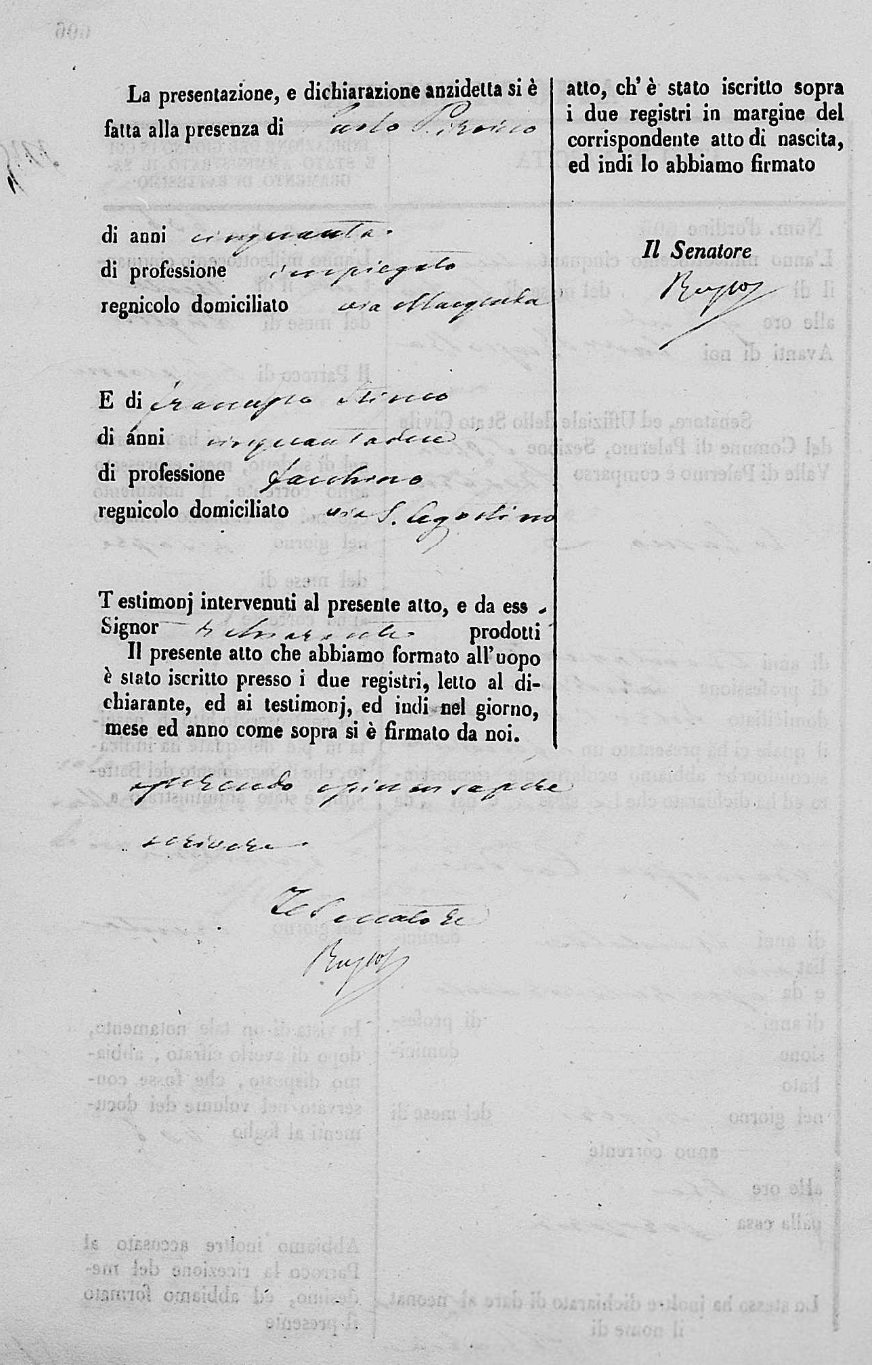 La presentazione, e dichiarazione anzidetta si è
fatta alla presenza di Carlo
di anni cinquanta
di professione impiegato
regnicolo domiciliato via Macqueda
E di Francesco
di anni cinquantadue
di professione facchino
regnicolo domiciliato via S. Agostino
Testimonj intervenuti al presente atto, e da ess
Signor dichiarante prodotti
Il presente atto che abbiamo formato all'uopo
è stato iscritto presso i due registri, letto al di-
chiarante, ed ai testimonj, ed indi nel giorno,
mese ed anno come sopra si è firmato da noi.
avendo sapere
scrivere
Il Senatore
atto, ch' è stato iscritto sopra
i due registri in margine del
corrispondente atto di nascita,
ed indi lo abbiamo firmato
Il Senatore